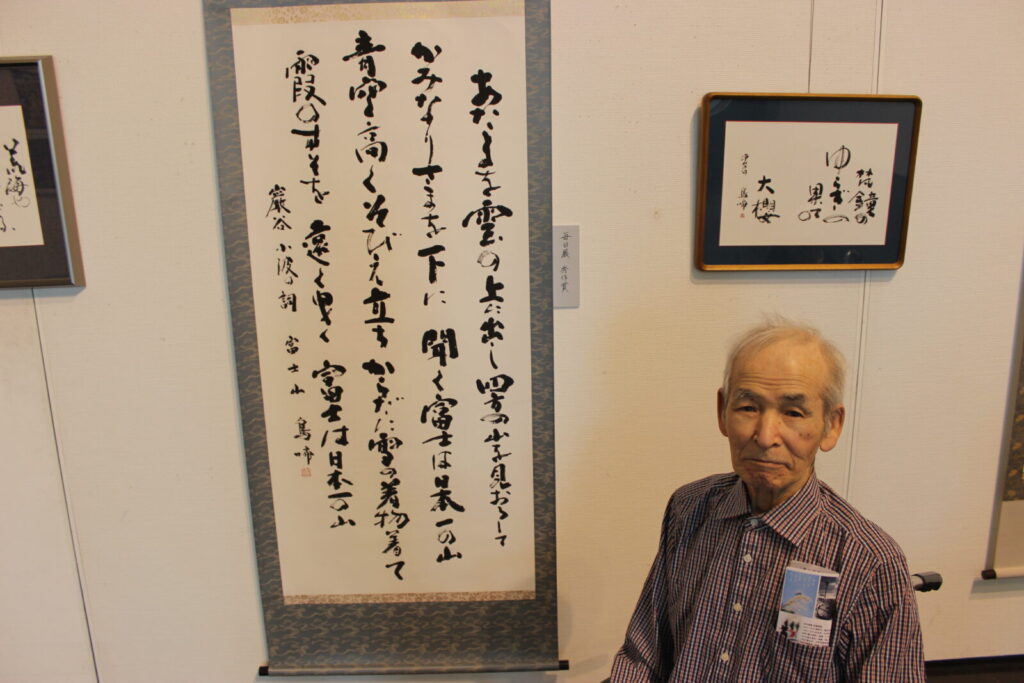 あたまを雲の上に出し 四方の山を見おろして
かみなりさまを下に 聞く富士は日本一の山
青空高くそびえ立ち からだに雪の着物着て
霞のすそを 遠く曳く 富士は日本一の山
巌谷小波の詞 富士山 鳥啼
毎日展 秀作賞
梵鐘の
ゆらぎの
果の
大櫻
鳥啼
荒海や